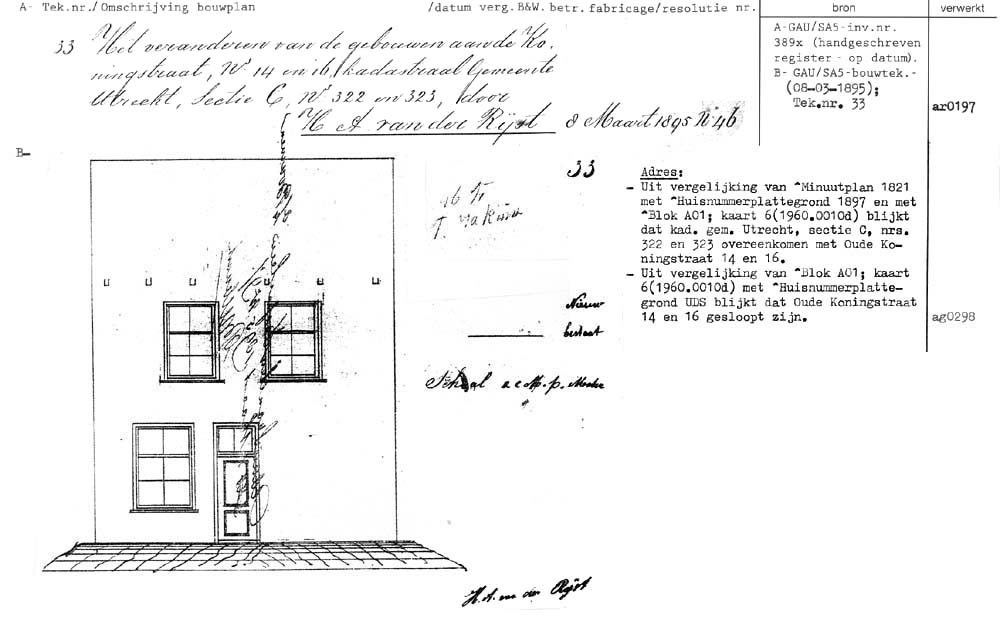 A- Tek.nr./ Omschrijving bouwplan /datum verg. B&W. betr. fabricage/resolutie nr. bron verwerkt
33 Het veranderen van de gebouwen aan de Ko-
ningstraat, Nº 14 en 16, kadastraal Gemeente
Utrecht, Sectie C, Nº 322 en 323, door
H A van der Rijst 8 Maart 1895 Nº 46
A-GAU/SA5-inv.nr.
389x (handgeschreven
register - op datum).
B- GAU/SA5-bouwtek.-
(08-03-1895);
Tek.nr. 33
ar0197
B-
33
46 Fr
Adres:
- Uit vergelijking van ^Minuutplan 1821
met ^Huisnummerplattegrond 1897 en met
^Blok A01; kaart 6(1960.0010d) blijkt
dat kad. gem. Utrecht, sectie C, nrs.
322 en 323 overeenkomen met Oude Ko-
ningstraat 14 en 16.
- Uit vergelijking van ^Blok A01; kaart
6(1960.0010d) met ^Huisnummerplatte-
grond UDS blijkt dat Oude Koningstraat
14 en 16 gesloopt zijn.
ag0298
Nieuw
bestaat
Schaal a 2 c.M. p. Meter
H. A. van der Rijst